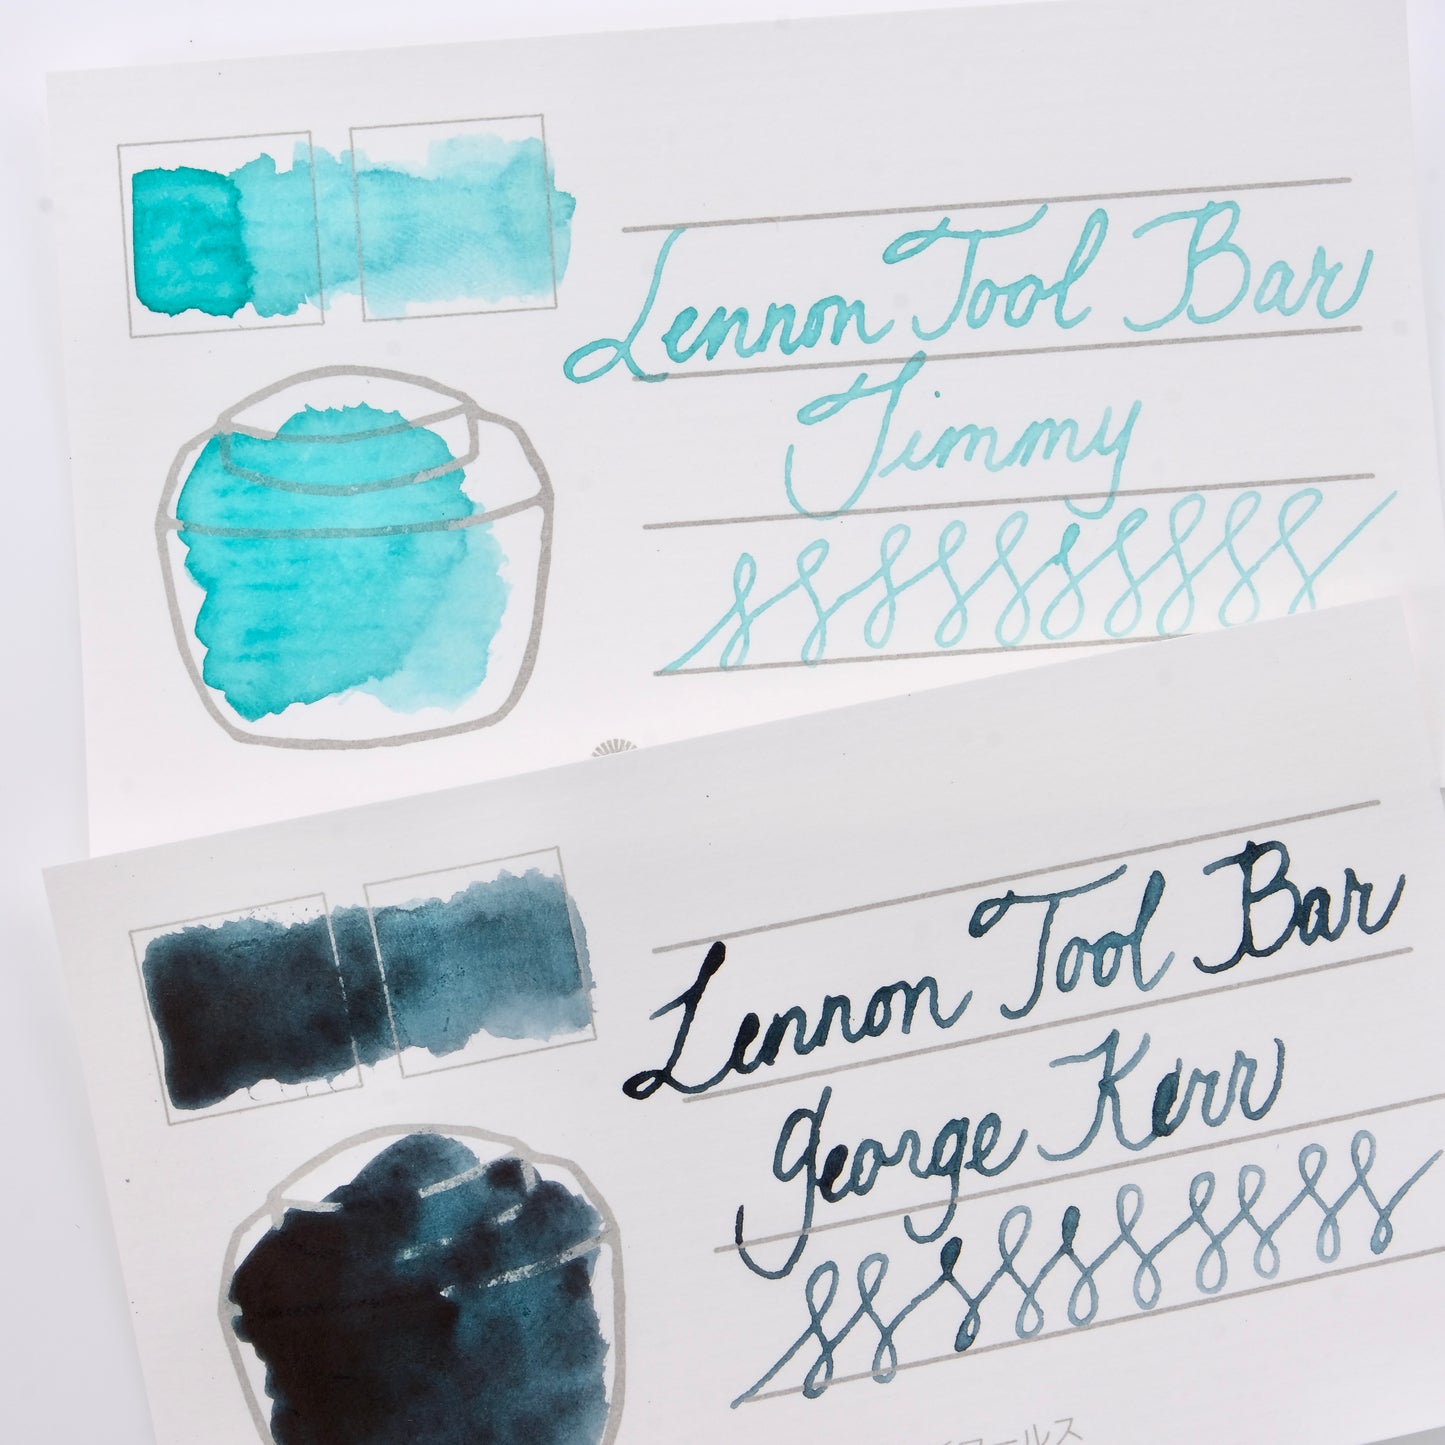 Lennon Tool Bar
Jimmy
Lennon Tool Bar
George Kerr